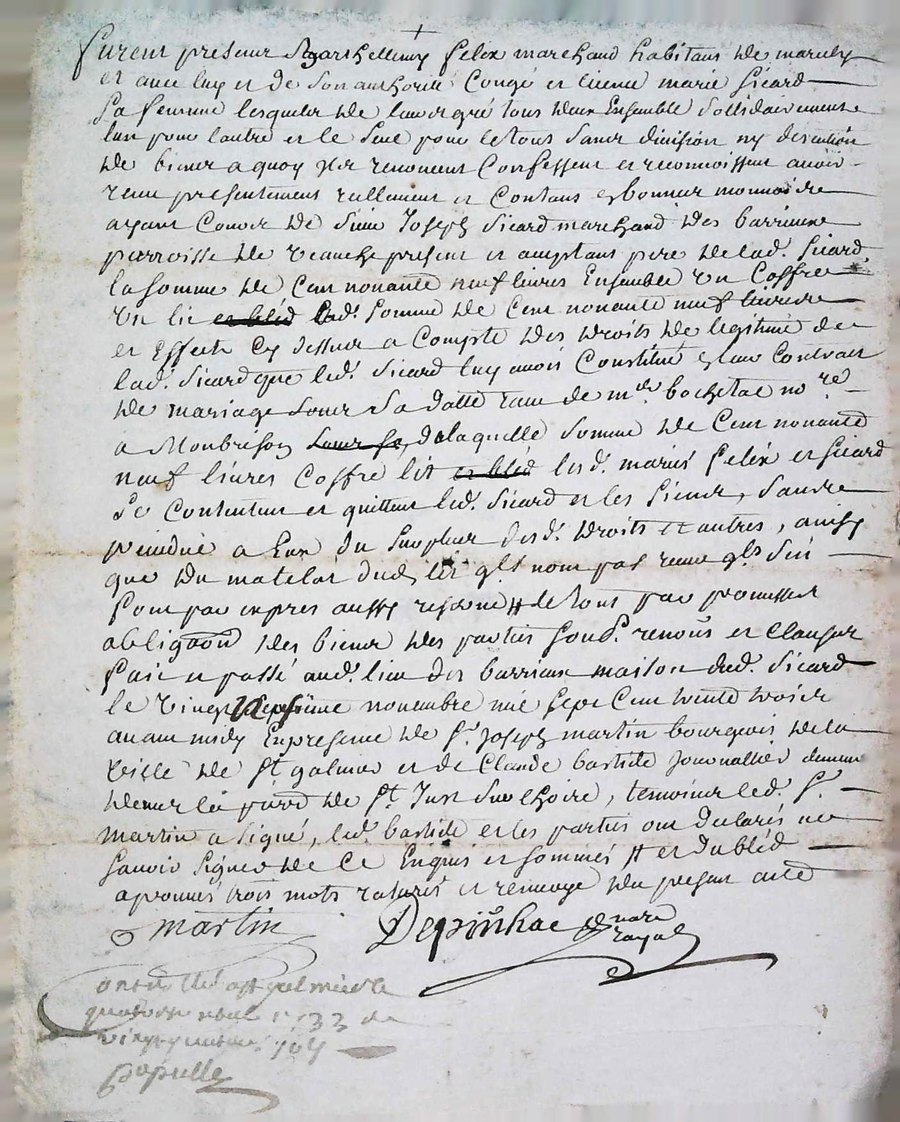 furent presens Barthellemy felix marchand habitans de marcilly
et avec luy et de son authorité Congé et licence marie sicard
sa femme lesquels de leur gré tous deux Ensemble Sollidairement
lun pour lautre et le seul pour le tous sans division ny discution
de biens a quoy ils renoncent Confessent et reconnoissent avoir
receu presentement reellement et Contans en bonnes monnoire
ayant Cours de sieur Joseph Sicard marchand des barriaux
parroisse de present et aceptans pere de lad. Sicard
la somme de Cent nonante neuf livres Ensemble un Coffre
un lit et bled lad. Somme de Cent nonante neuf livres
et Effects Cy dessus a Compte des droits de legitime de
lad. Sicard que led. Sicard luy avoit Constitué en leur Contrat
de mariage sous sa datte receu de me bochetal nore
a Monbrison sous sa, de laquelle somme de Cent nonante
neuf livres Coffre lit et bled lesd. mariés felix et sicard
se Contentent et quittent led. Sicard et les siens, sans
prejudice a Eux du surplus desd. droits et autres, ainsy
que du matelat dud. lit qls nont pas receu qls sen
font par expres aussy reserve # de tous par promesses
obligaon des biens des parties soud. renons et clauses
fait et passé aud. lieu des barriaux maison dud. Sicard
le vingt septieme novembre mil sept Cent trente trois
avant midy En presence de Sr. Joseph martin bourgeois de la
ville de St galmier et de Claude bastide Journallier
de la parr. de St. Just Sur Loire, temoins led. Sr.
martin a signé, led. bastide et les parties ont declarés ne
scavoir signer de Ce Enquis et sommés # et du bled
aprouvés trois mots raturés et renvoye du present acte
martin Depinhac nore
royal
controllé a st galmier le
quatorze 1733 Rx
vingt quatre s.